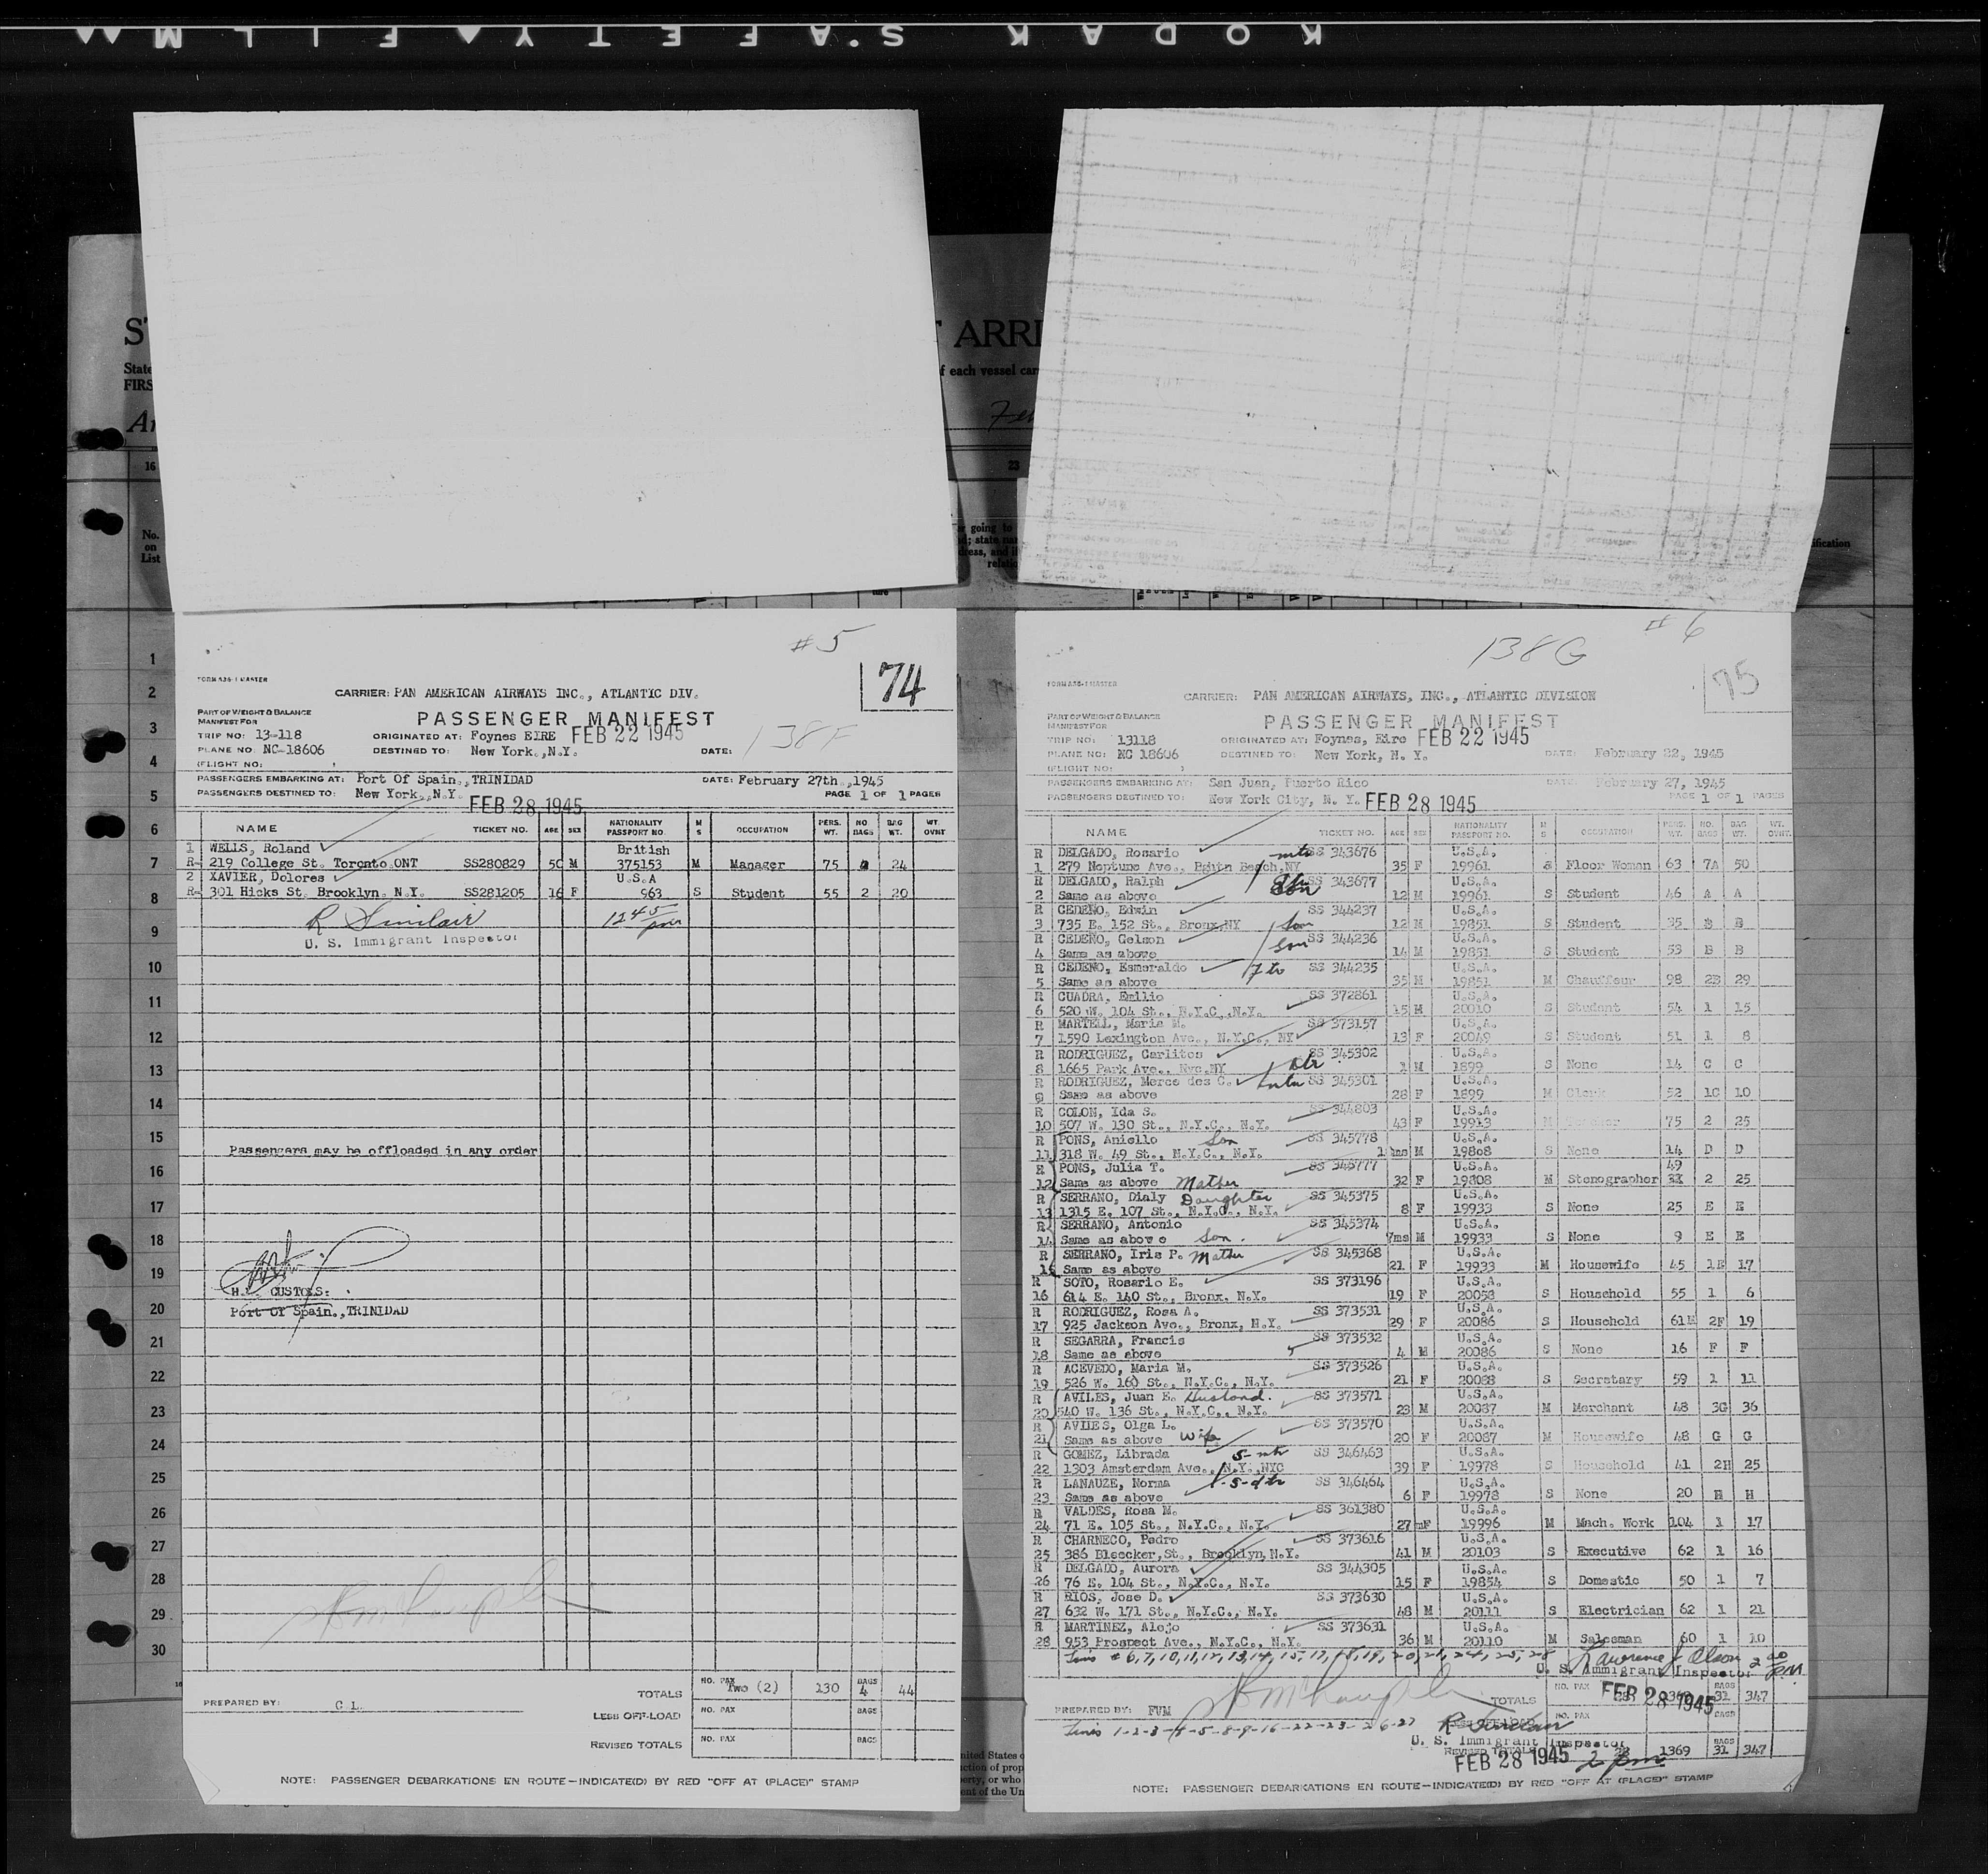 KODAK SAFETY FILM
ST
T ARRI
State
FIRS
f each vessel car
Ar
16
23
No.
on
List
# 5
74
FORM A36-1 MASTER
CARRIER: PAN AMERICAN AIRWAYS INC., ATLANTIC DIV.
PART OF WEIGHT & BALANCE
MANIFEST FOR
PASSENGER MANIFEST
138F
TRIP NO: 13-118
ORIGINATED AT: Foynes EIRE FEB 22 1945
PLANE NO NC-18606
DESTINED TO: New York.,N.Y.
DATE:
(FLIGHT NO: )
PASSENGERS EMBARKING AT: Port Of Spain., TRINIDAD
DATE: February 27th.,1945
PASSENGERS DESTINED TO: New York.,N.Y. FEB 28 1945
PAGE 1 OF 1 PAGES
NAME TICKET NO. AGE SEX NATIONALITY PASSPORT NO. M S OCCUPATION PERS. WT. NO BAGS BAG WT. WT. OVNT
1 WELLS, Roland British
R- 219 College St. Toronto ONT SS280829 50 M 375153 M Manager 75 24
2 XAVIER, Dolores U.S.A
R- 301 Hicks St. Brooklyn. N.Y. SS281205 16 F 963 S Student 55 2 20
R Sinclair 1245 pm
U. S. Immigrant Inspector
Passengers may be offloaded in any order
H. CUSTOMS:
Port Of Spain.,TRINIDAD
TOTALS NO. PAX Two (2) 130 BAGS 4 44
PREPARED BY: C L
LESS OFF-LOAD NO. PAX BAGS
REVISED TOTALS NO. PAX BAGS
NOTE: PASSENGER DEBARKATIONS EN ROUTE—INDICATE(D) BY RED "OFF AT (PLACE)" STAMP
1
2
3
4
5
6
7
8
9
10
11
12
13
14
15
16
17
18
19
20
21
22
23
24
25
26
27
28
29
30
# 6
138G
75
FORM A36-1 MASTER
CARRIER: PAN AMERICAN AIRWAYS, INC., ATLANTIC DIVISION
PART OF WEIGHT & BALANCE
MANIFEST FOR
PASSENGER MANIFEST
TRIP NO: 13118
ORIGINATED AT: Foynes, Eire FEB 22 1945
PLANE NO: NC 18606
DESTINED TO: New York, N. Y.
DATE: February 22, 1945
(FLIGHT NO: )
PASSENGERS EMBARKING AT: San Juan, Puerto Rico
DATE: February 27, 1945
PASSENGERS DESTINED TO: New York City, N. Y. FEB 28 1945
PAGE 1 OF 1 PAGES
NAME TICKET NO. AGE SEX NATIONALITY PASSPORT NO. M S OCCUPATION PERS. WT. NO. BAGS BAG WT. WT. OVNT.
R DELGADO, Rosario SS 343676 U.S.A.
1 279 Neptune Ave., Beach,NY 35 F 19961 S Floor Woman 63 7A 50
R DELGADO, Ralph Son SS 343677 U.S.A.
2 Same as above 12 M 19961 S Student 46 A A
R CEDEÑO, Edwin SS 344237 U.S.A.
3 735 E. 152 St., Bronx,NY Son 12 M 19851 S Student 35 B B
R CEDEÑO, Gelson Son SS 344236 U.S.A.
4 Same as above 14 M 19851 S Student 53 B B
R CEDEÑO, Esmeraldo SS 344235 U.S.A.
5 Same as above 35 M 19851 M Chauffeur 98 2B 29
R CUADRA, Emilio SS 372861 U.S.A.
6 520 W. 104 St., N.Y.C.,N.Y. 15 M 20010 S Student 54 1 15
R MARTELL, Maria M. SS 373157 U.S.A.
7 1590 Lexington Ave., N.Y.C., NY 13 F 20049 S Student 51 1 8
R RODRIGUEZ, Carlitos SS 345302 U.S.A.
8 1665 Park Ave., Nyc.NY 1 M 1899 S None 14 C C
R RODRIGUEZ, Merce des C. SS 345301 U.S.A.
9 Same as above 28 F 1899 M Clerk 52 1C 10
R COLON, Ida S. SS 344803 U.S.A.
10 507 W. 130 St., N.Y.C., N.Y. 43 F 19913 M 75 2 25
R PONS, Aniello Son SS 345778 U.S.A.
11 318 W. 49 St., N.Y.C., N.Y. M 19808 S None 14 D D
R PONS, Julia T. SS 345777 U.S.A. 49
12 Same as above Mother 32 F 19808 M Stenographer 2 25
R SERRANO, Dialy Daughter SS 345375 U.S.A.
13 1315 E. 107 St., N.Y.C., N.Y. 8 F 19933 S None 25 E E
R SERRANO, Antonio SS 345374 U.S.A.
14 Same as above Son. 7ms M 19933 S None 9 E E
R SERRANO, Iris P. Mother SS 345368 U.S.A.
15 Same as above 21 F 19933 M Housewife 45 1E 17
R SOTO, Rosario E. SS 373196 U.S.A.
16 614 E. 140 St., Bronx. N.Y. 19 F 20058 S Household 55 1 6
R RODRIGUEZ, Rosa A. SS 373531 U.S.A.
17 925 Jackson Ave., Bronx, N.Y. 29 F 20086 S Household 61 2F 19
R SEGARRA, Francis SS 373532 U.S.A.
18 Same as above 4 M 20086 S None 16 F F
R ACEVEDO, Maria M. SS 373526 U.S.A.
19 526 W. 160 St., N.Y.C., N.Y. 21 F 20088 S Secretary 59 1 11
R AVILES, Juan E. Husband. SS 373571 U.S.A.
20 540 W. 136 St., N.Y.C., N.Y. 23 M 20087 M Merchant 48 3G 36
R AVILES, Olga L. SS 373570 U.S.A.
21 Same as above Wife 20 F 20087 M Housewife 48 G G
R GOMEZ, Librada SS 346463 U.S.A.
22 1303 Amsterdam Ave., N.Y.,NYC 39 F 19978 S Household 41 2H 25
R LANAUZE, Norma SS 346464 U.S.A.
23 Same as above 6 F 19978 S None 20 H H
R VALDES, Rosa M. SS 361380 U.S.A.
24 71 E. 105 St., N.Y.C., N.Y. 27 F 19996 M Mach. Work 104 1 17
R CHARNECO, Pedro SS 373616 U.S.A.
25 386 Bleecker,St., Brooklyn,N.Y. 41 M 20103 S Executive 62 1 16
R DELGADO, Aurora SS 344305 U.S.A.
26 76 E. 104 St., N.Y.C., N.Y. 15 F 19854 S Domestic 50 1 7
R RIOS, Jose D. SS 373630 U.S.A.
27 632 W. 171 St., N.Y.C., N.Y. 48 M 20111 S Electrician 62 1 21
R MARTINEZ, Alejo SS 373631 U.S.A.
28 953 Prospect Ave., N.Y.C., N.Y. 36 M 20110 M Salesman 60 1 10
Lines # 6,7,10,11,12,13,14,15,17,18,19,20,21,24,25,28 Lawrence J Olson 2 00 P.M.
U. S. Immigrant Inspector
TOTALS NO. PAX FEB 28 1945 BAGS 31 347
PREPARED BY: FVM
Lines 1-2-3-4-5-8-9-16-22-23-26-27 R Sinclair
NO. PAX BAGS
U. S. Immigrant Inspector
REVISED TOTALS 28 1369 BAGS 31 347
FEB 28 1945 2 pm
NOTE: PASSENGER DEBARKATIONS EN ROUTE—INDICATE(D) BY RED "OFF AT (PLACE)" STAMP